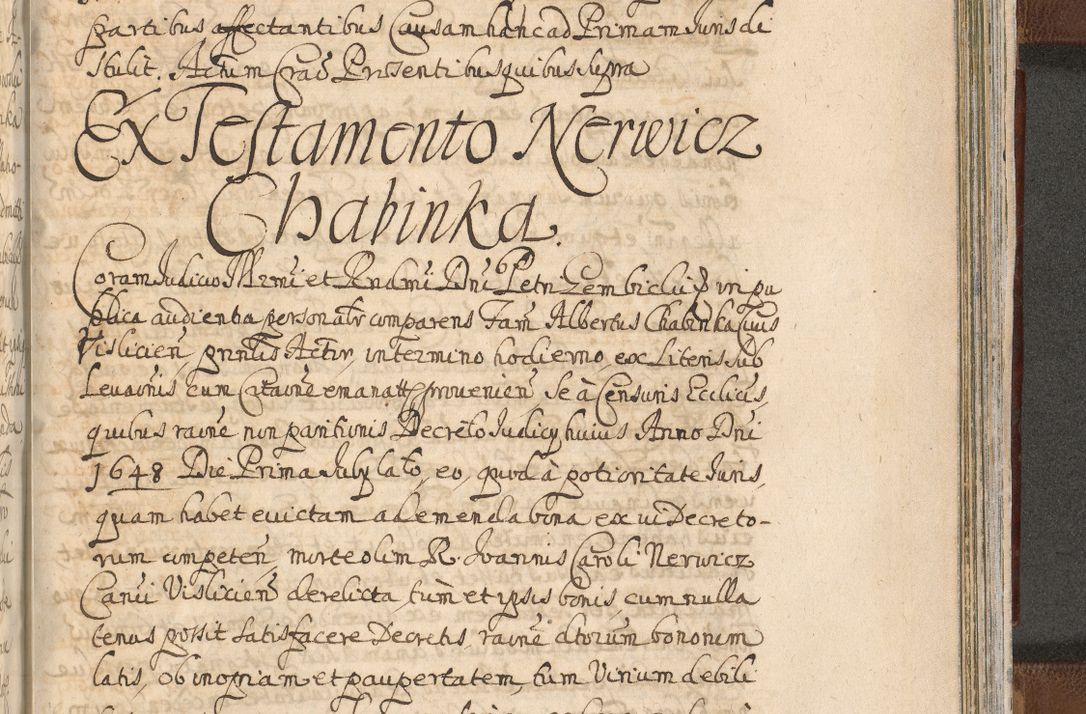 partibus affectantibus Causam hanc ad Primam Juris di
stulit. Actum Crac̃ Præsentibus quibus supra
Ex Testamento Nerwicz
Chabinka.
Coram Judicio Illr̃mi et Rndmi Dñi Petri Gembicki Ep̃i in pu
blica audientia personalr̃ comparens Fam. Albertus Chabinka Civis
Vislicien̄, pñtis Actor, in termino hodierno, ex Literis sub
levaõnis cum Cita̅o̅n̅e emanatt provenien̄ se à Censuris Ecclicis,
quibus raõne non paritionis Decreto Judicij huius Anno Dñi
1648 Die Prima July lato, eo, quod à potioritate Juris,
quam habet evictam ademenda bona ex vi Decreto-
rum competen̄, morte olim R. Joannis Caroli Nerwicz
Canci Vislicien̄ derelicta, tum et ipsis bonis, cum nulla
tenus possit satisfacere Decretis, raõne dtorum bonorum
latis, ob inopiam et paupertatem, tum Virium debili